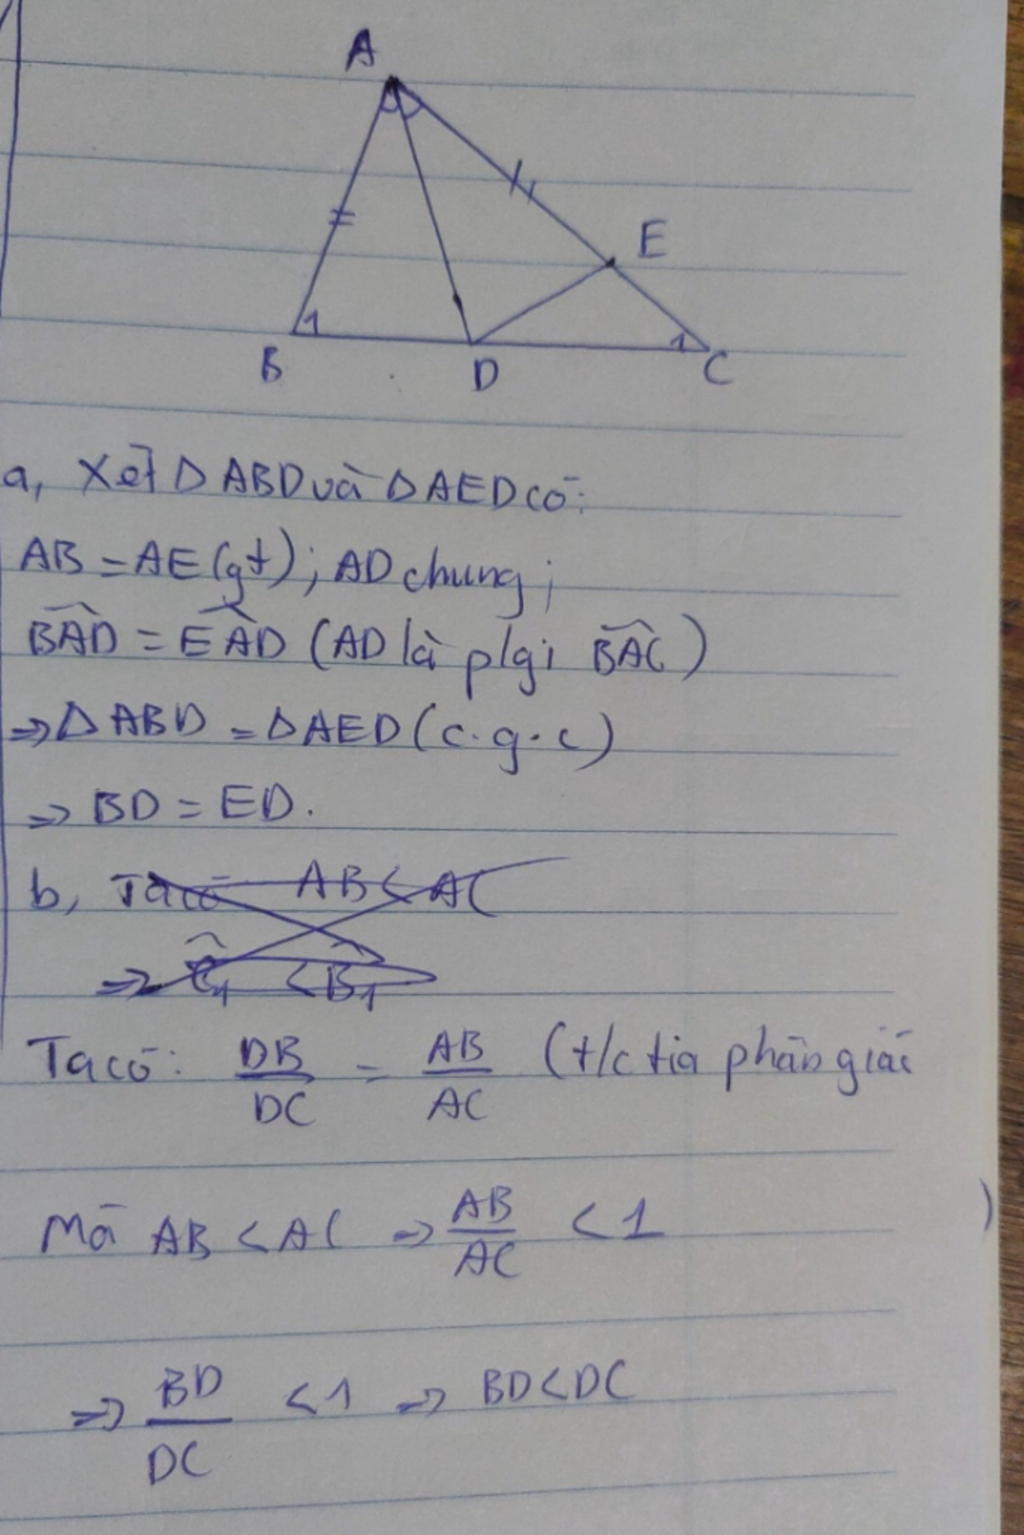 A
E
B
1
D
1
C
a, Xét Δ ABD và Δ AED có:
AB = AE (gt); AD chung;
BÂD = EÂD (AD là p/gi BÂC)
=> Δ ABD = Δ AED (c.g.c)
=> BD = ED.
b, Ta có AB < AC
=> Ĉ1 < B̂1
Ta có: DB/DC = AB/AC (t/c tia phân giác
)
Mà AB < AC => AB/AC < 1
=> BD/DC < 1 => BD < DC